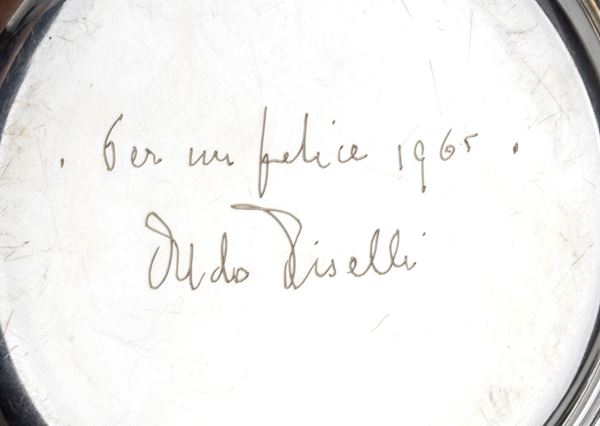 . Per un felice 1965 .
Aldo Piselli